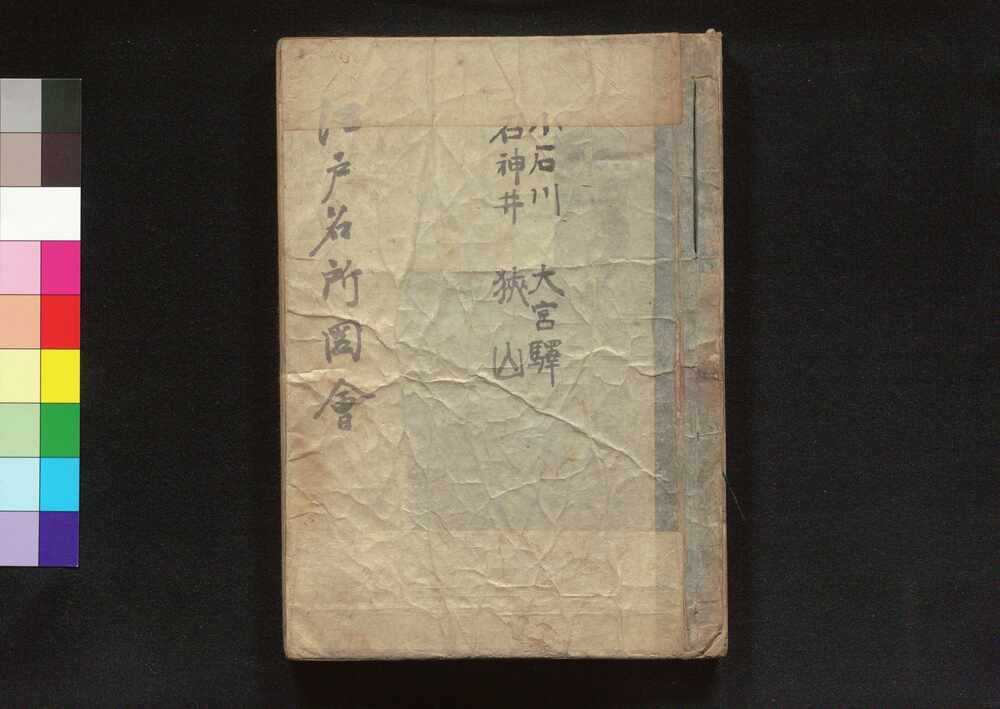 小石川 大宮驛
石神井 狹山
江戸名所圖會